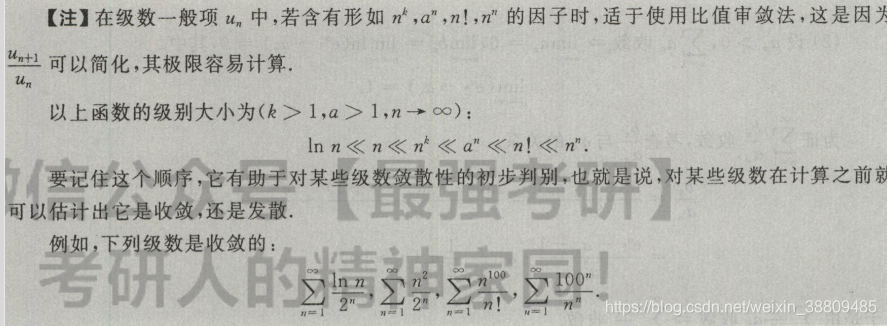 【注】在级数一般项 uₙ 中,若含有形如 nᵏ,aⁿ,n!,nⁿ 的因子时,适于使用比值审敛法,这是因为
uₙ₊₁/uₙ 可以简化,其极限容易计算.
以上函数的级别大小为(k > 1,a > 1,n → ∞):
ln n ≪ n ≪ nᵏ ≪ aⁿ ≪ n! ≪ nⁿ.
要记住这个顺序,它有助于对某些级数敛散性的初步判别,也就是说,对某些级数在计算之前就
可以估计出它是收敛,还是发散.
例如,下列级数是收敛的:
∑_{n=1}^{∞} ln n/2ⁿ, ∑_{n=1}^{∞} n²/2ⁿ, ∑_{n=1}^{∞} n¹⁰⁰/n!, ∑_{n=1}^{∞} 100ⁿ/nⁿ.
信公众号【最强考研】
考研人的精神家园!
https://blog.csdn.net/weixin_38809485